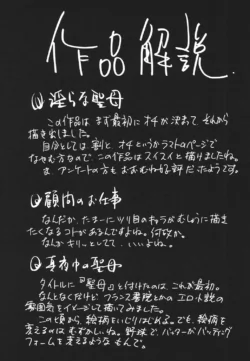 作品解説.
①淫らな聖母
この作品は、まず最初にオチが決まって、それから
描き出しました。
自分としては割と、オチというかラストのページで
なやむ方なので、この作品はスイスイと描けましたね。
ま、アンケートの方もおおむね好評だったようです。
②顧問のお仕事
なんだか、たま〜にツリ目のキャラがむしょうに描き
たくなるコトがあるんですよね。何故か。
なんかキリっとしてて…いいよね。
③真夜中の聖母
タイトルに『聖母』と付けたのは、これが最初。
なんとなくだけど、フランス書院とかのエロ小説の
雰囲気をイメージして描いてみました。
この頃から、絵柄をいじりはじめる。でも、絵柄を
変えるのはむずかしいね。野球で、バッターがバッティング
フォームを変えるようなもんで。